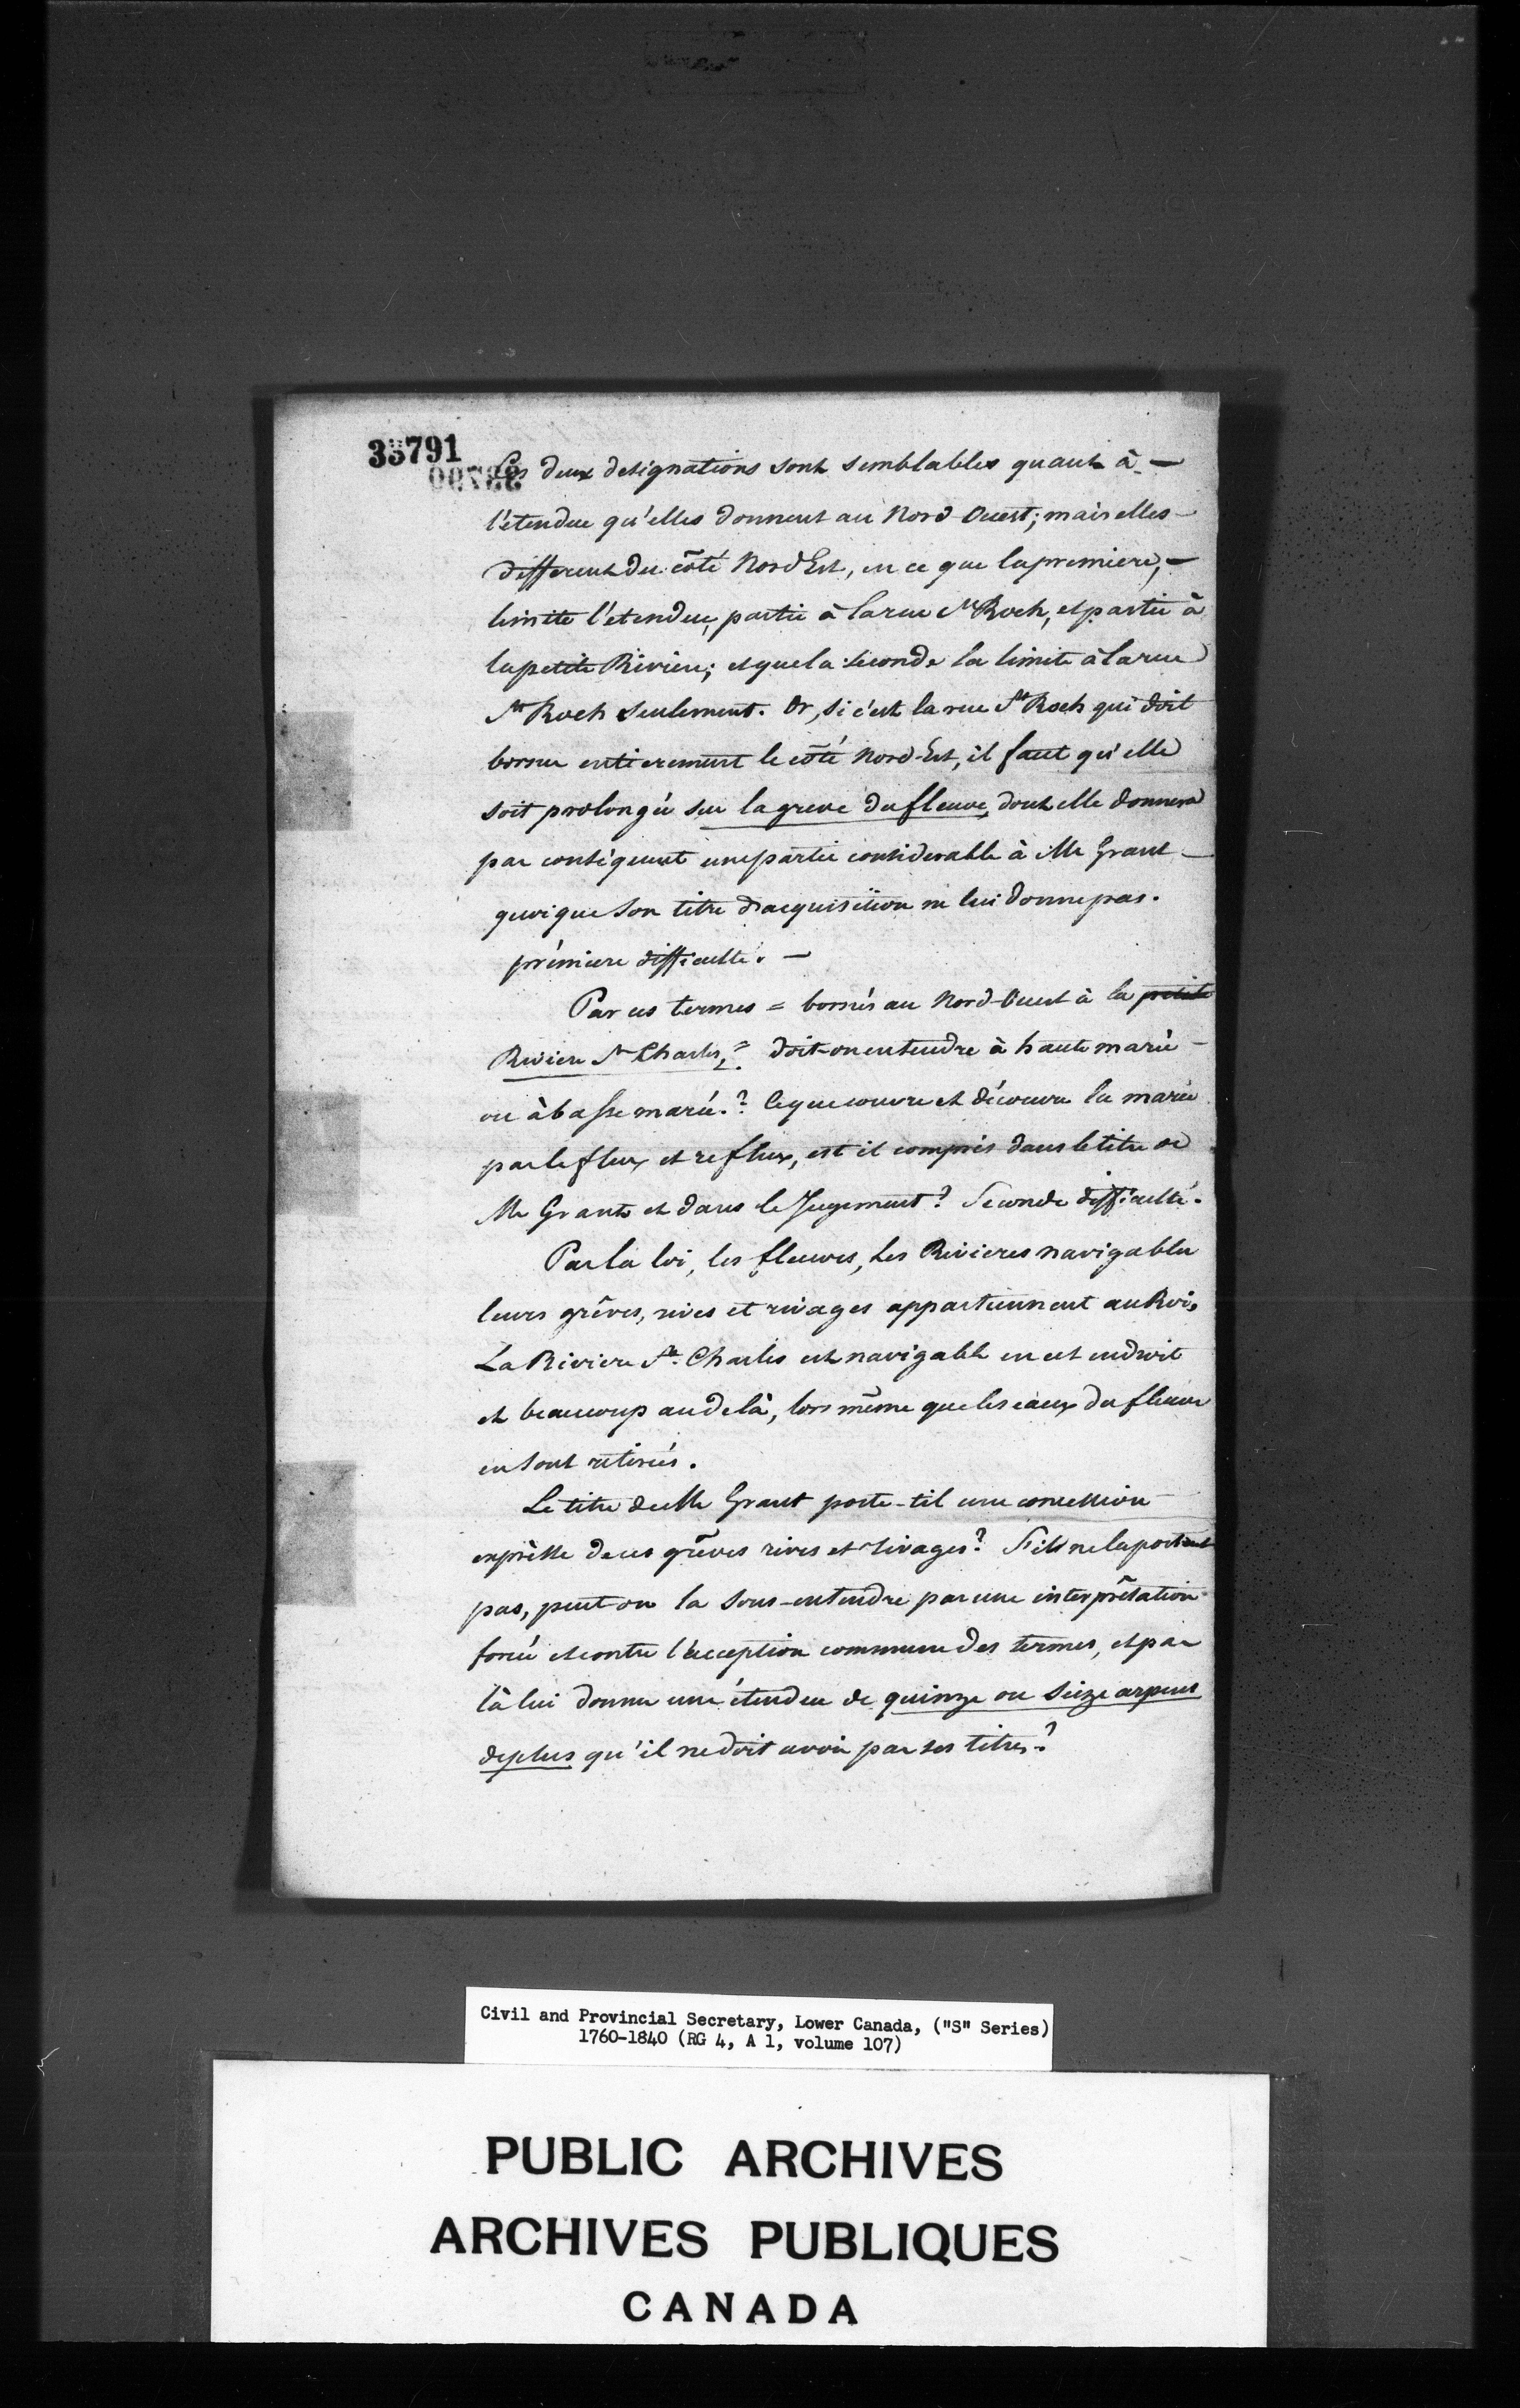 33791
Les deux designations sont semblables quant à —
l'étendue qu'elles donnent au Nord Ouest; mais elles —
different du côté Nord Est, en ce que la premiere, —
limite l'etendue, partie à la rue St Roch, et partie à
la petite Riviere; et que la seconde la limite à la rue
St Roch seulement. Or, si c'est la rue St Roch qui doit
borner entierement le côté Nord-Est, il faut qu'elle
soit prolongée sur la greve du fleuve, dont elle donnera
par conséquent une partie considerable à Mr Grant —
quoique son titre d'acquisition ne lui donne pas.
prémiere difficulté. —
Par ces termes = bornés au Nord-Ouest à la petite
Riviere St Charles, = doit-on entendre à haute marée —
ou à basse marée.? Ce que couvre et découvre la marée
par le flux et reflux, est il compris dans le titre de
Mr Grant et dans le Jugement? Seconde difficulté.
Par la loi, les fleuves, les Rivieres navigables
leurs grêves, rives et rivages appartiennent au Roi,
La Riviere St. Charles est navigable en cet endroit
et beaucoup au delà, lors même que les eaux du fleuve
en sont retirées.
Le titre de Mr Grant porte-til une concession
expresse de ces grêves rives et rivages? S'ils ne la portent
pas, peut-on la sous-entendre par une interprêtation
forcée et contre l'acception commune des termes, et par
là lui donner une étendue de quinze ou seize arpens
de plus qu'il ne doit avoir par ses titres?
Civil and Provincial Secretary, Lower Canada, ("S" Series)
1760-1840 (RG 4, A 1, volume 107)
PUBLIC ARCHIVES
ARCHIVES PUBLIQUES
CANADA